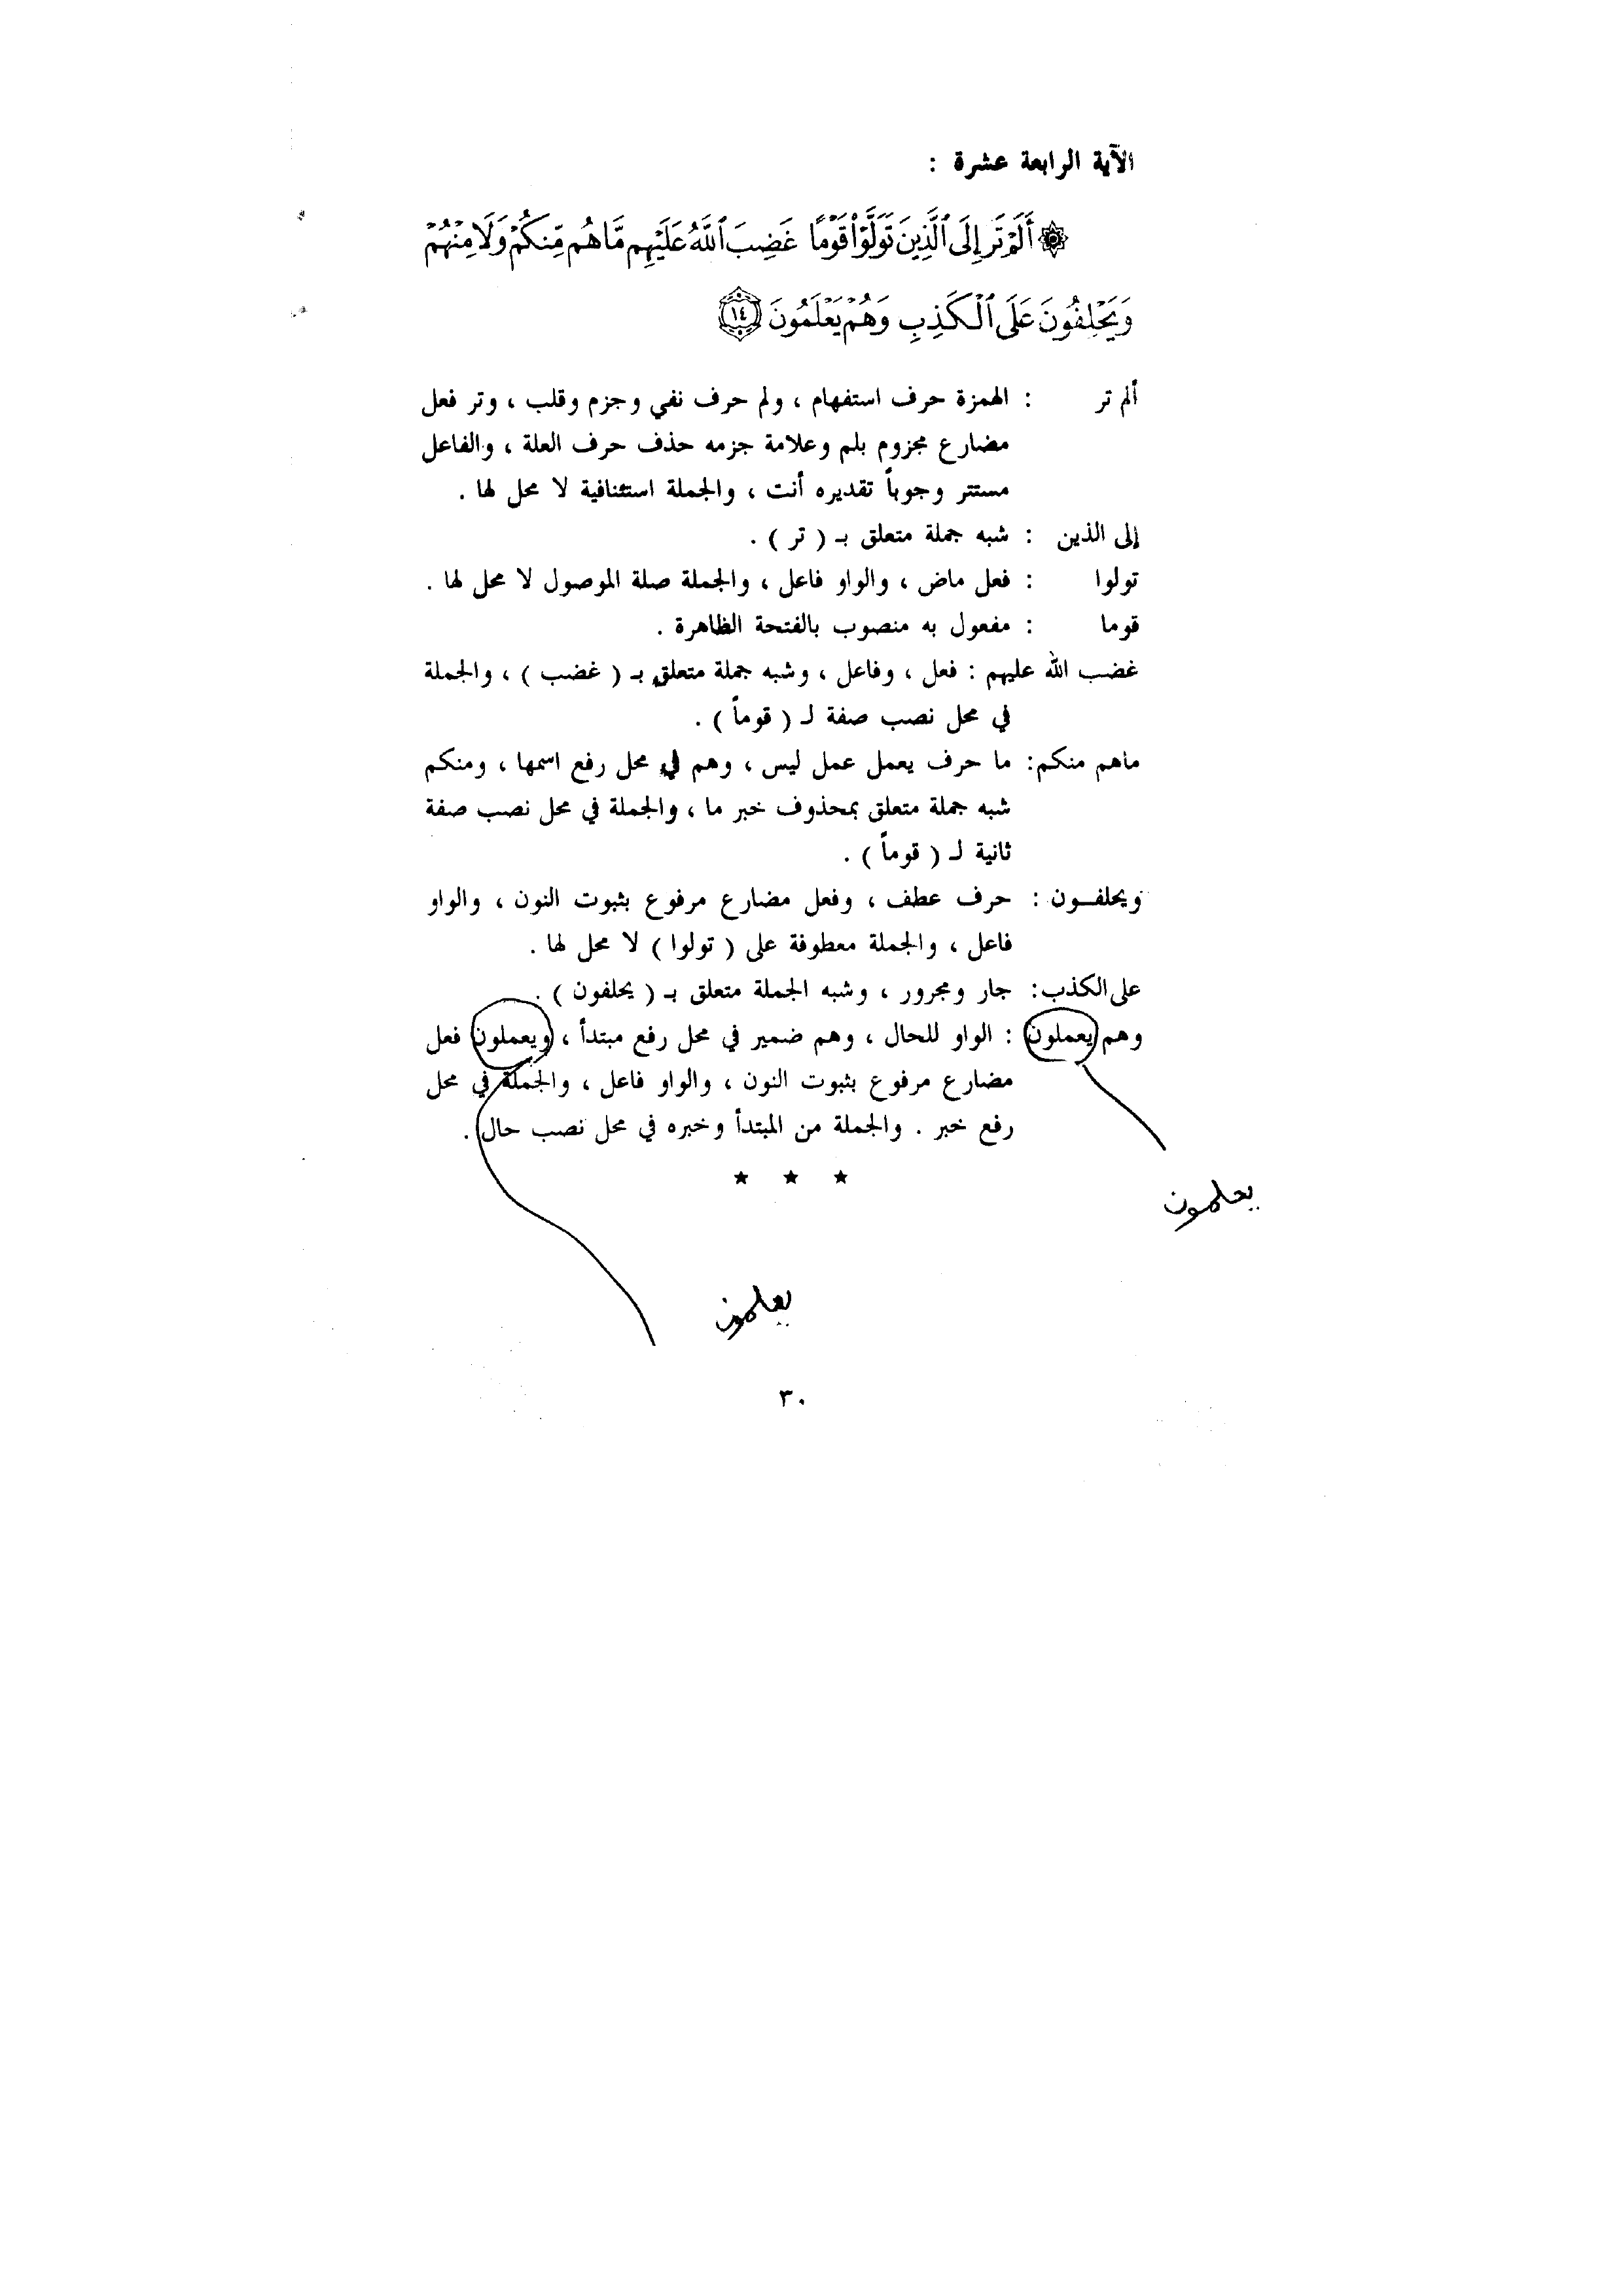 الآية الرابعة عشرة :
۞ أَلَمْ تَرَ إِلَى ٱلَّذِينَ تَوَلَّوْا۟ قَوْمًا غَضِبَ ٱللَّهُ عَلَيْهِم مَّا هُم مِّنكُمْ وَلَا مِنْهُمْ
وَيَحْلِفُونَ عَلَى ٱلْكَذِبِ وَهُمْ يَعْلَمُونَ ١٤
ألم تر : الهمزة حرف استفهام ، ولم حرف نفي وجزم وقلب ، وتر فعل
مضارع مجزوم بلم وعلامة جزمه حذف حرف العلة ، والفاعل
مستتر وجوباً تقديره أنت ، والجملة استئنافية لا محل لها .
إلى الذين : شبه جملة متعلق بـ ( تر ) .
تولوا : فعل ماض ، والواو فاعل ، والجملة صلة الموصول لا محل لها .
قوما : مفعول به منصوب بالفتحة الظاهرة .
غضب الله عليهم : فعل ، وفاعل ، وشبه جملة متعلق بـ ( غضب ) ، والجملة
في محل نصب صفة لـ ( قوماً ) .
ماهم منكم : ما حرف يعمل عمل ليس ، وهم في محل رفع اسمها ، ومنكم
شبه جملة متعلق بمحذوف خبر ما ، والجملة في محل نصب صفة
ثانية لـ ( قوماً ) .
ويحلفـون : حرف عطف ، وفعل مضارع مرفوع بثبوت النون ، والواو
فاعل ، والجملة معطوفة على ( تولوا ) لا محل لها .
على الكذب : جار ومجرور ، وشبه الجملة متعلق بـ ( يحلفون ) .
وهم يعملون : الواو للحال ، وهم ضمير في محل رفع مبتدأ ، ويعملون فعل
مضارع مرفوع بثبوت النون ، والواو فاعل ، والجملة في محل
رفع خبر . والجملة من المبتدأ وخبره في محل نصب حال .
★ ★ ★
يعلمون
يعلمون
٣٠